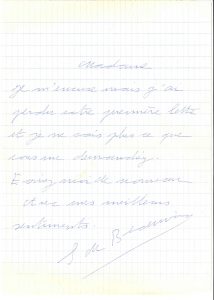 Madame
Je m'excuse mais j'ai
perdu votre première lettre
et je ne sais plus ce que
vous me demandiez.
Ecrivez moi de nouveau
Avec mes meilleurs
sentiments.
S de Beauvoir